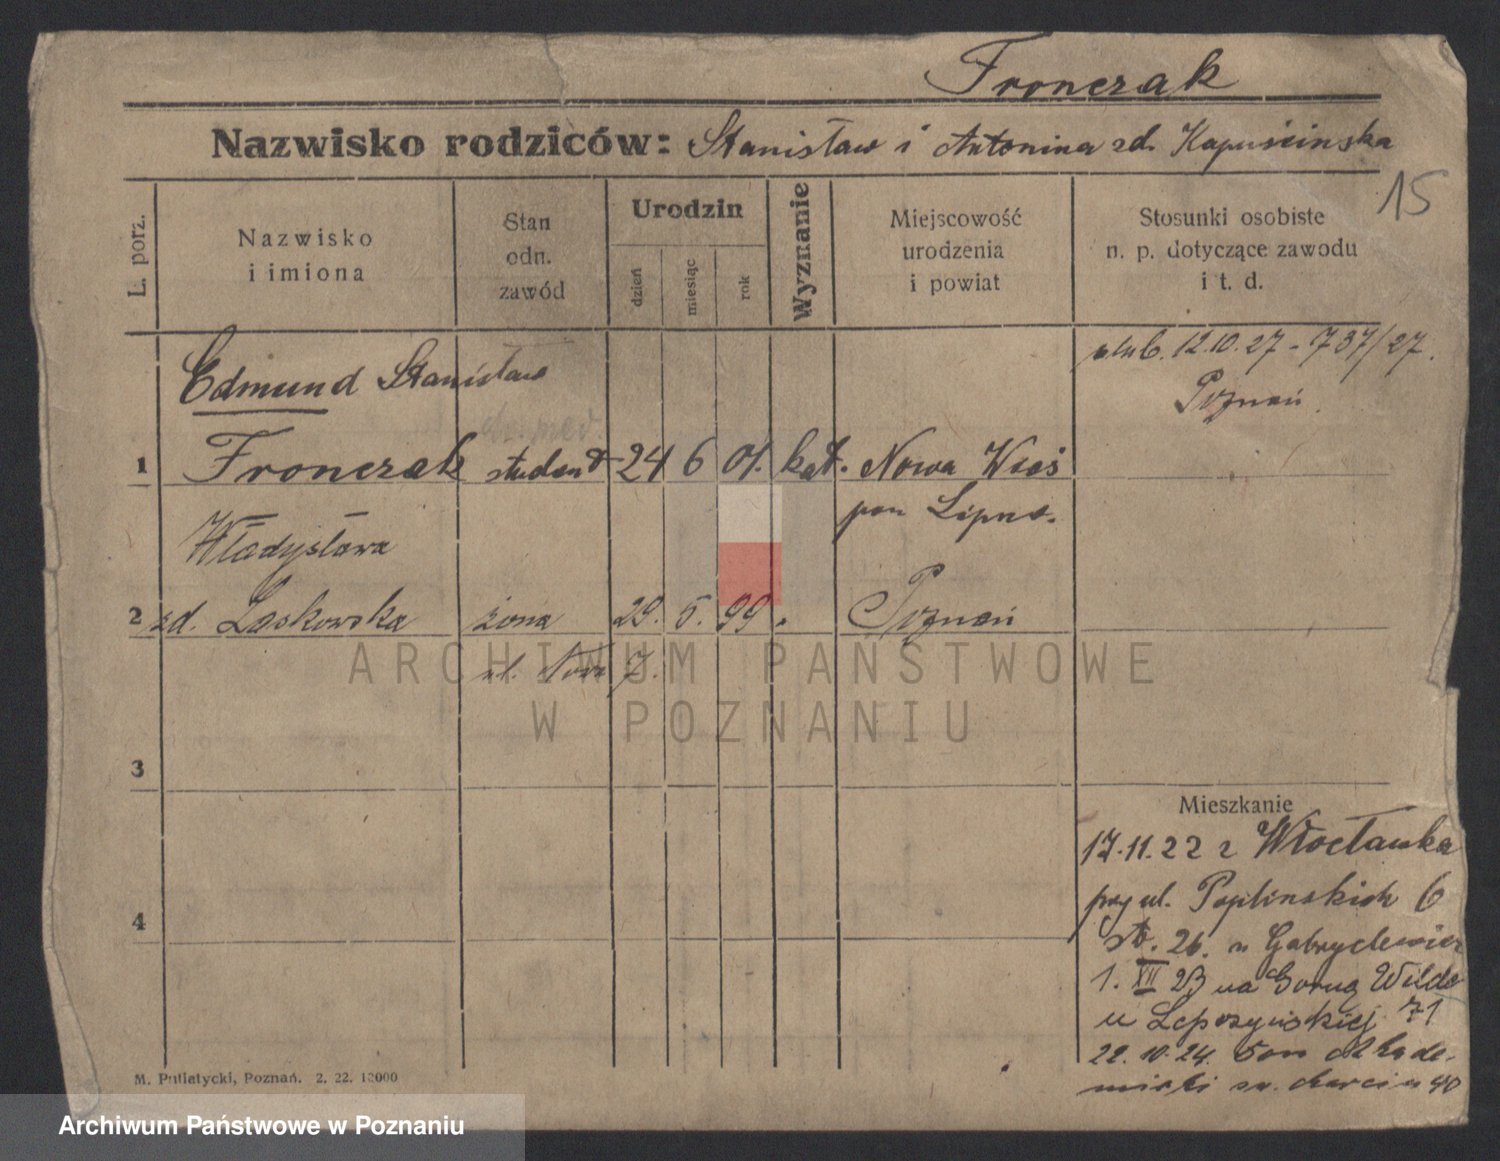 Fronczak
Nazwisko rodziców: Stanisław i Antonina zd. Kapuścinska
15
L. porz.
Nazwisko
i imiona
Stan
odn.
zawód
Urodzin
dzień
miesiąc
rok
Wyznanie
Miejscowość
urodzenia
i powiat
Stosunki osobiste
n. p. dotyczące zawodu
i t. d.
ślub. 12.10.27 - 737/27.
Poznań
Edmund Stanisław
dr. med.
1 Fronczak student 24 6 01. kat. Nowa Wieś
pow Lipno.
Władysława
2 zd. Laskowska żona 29. 5. 99 . Poznań
ul. 7.
ARCHIWUM PAŃSTWOWE
W POZNANIU
3
4
Mieszkanie
17.11.22 z Włocławka
przy ul. Poplinskich 6
st. 26. u Gabryelewicz
1. XII 23 na Gorną Wildę 71
u Lepszyńskiej
22.10.24. Dom akade-
micki sw. Marcin 40
M. Putiatycki, Poznań. 2. 22. 12000
Archiwum Państwowe w Poznaniu